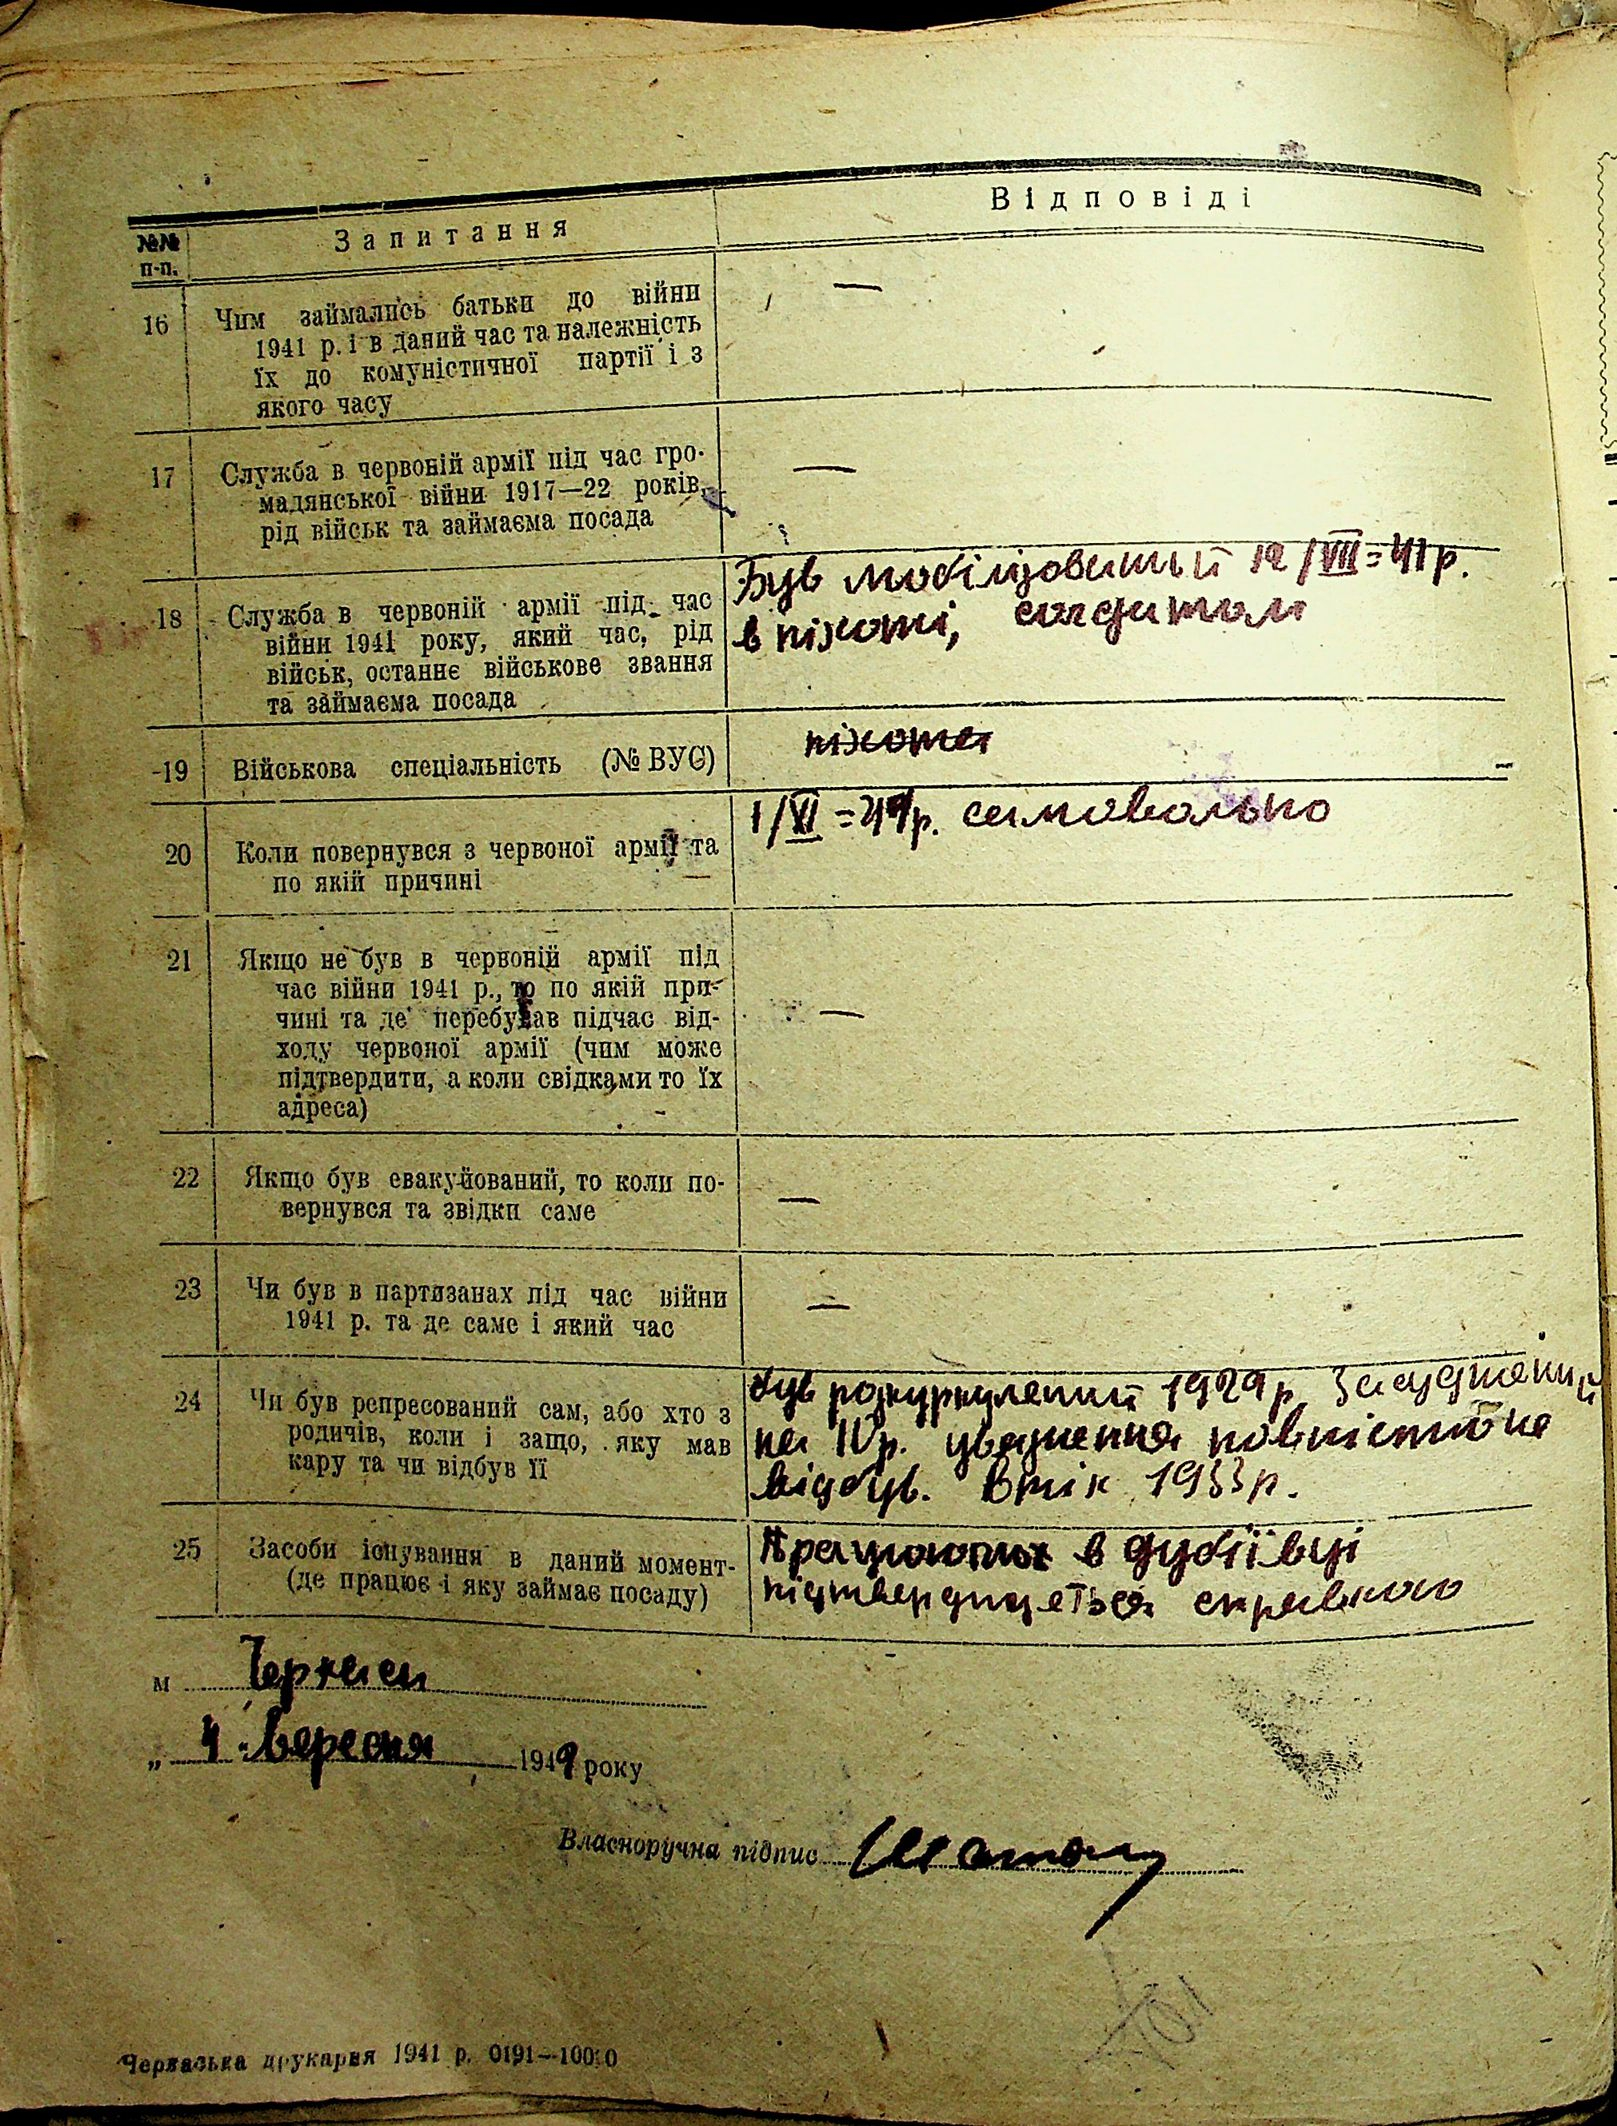 №№ п-п.
Запитання
Відповіді
16
Чим займались батьки до війни
1941 р. і в даний час та належність
їх до комуністичної партії і з
якого часу
—
17
Служба в червоній армії під час гро-
мадянської війни 1917—22 років,
рід військ та займаєма посада
—
18
Служба в червоній армії під час
війни 1941 року, який час, рід
військ, останнє військове звання
та займаєма посада
Був мобілізованый 12/VII=41р.
в піхоті, солдатом
19
Військова спеціальність (№ ВУС)
піхота
20
Коли повернувся з червоної армії та
по якій причині
1/VI=42р. самовольно
21
Якщо не був в червоній армії під
час війни 1941 р., то по якій при-
чині та де перебував підчас від-
ходу червоної армії (чим може
підтвердити, а коли свідками то їх
адреса)
—
22
Якщо був евакуйований, то коли по-
вернувся та звідки саме
—
23
Чи був в партизанах під час війни
1941 р. та де саме і який час
—
24
Чи був репресований сам, або хто з
родичів, коли і защо, яку мав
кару та чи відбув її
був розкуркулений 1929р. Засуджений
на 10р. увязнення повністю не
відбув. Втік 1933р.
25
Засоби існування в даний момент-
(де працює і яку займає посаду)
в Дубіївці
підтверджується справкою
м Черкаси
„ 4 " Вересня 1942 року
Власноручна підпис
Черкаська друкарня 1941 р. 0191—10000